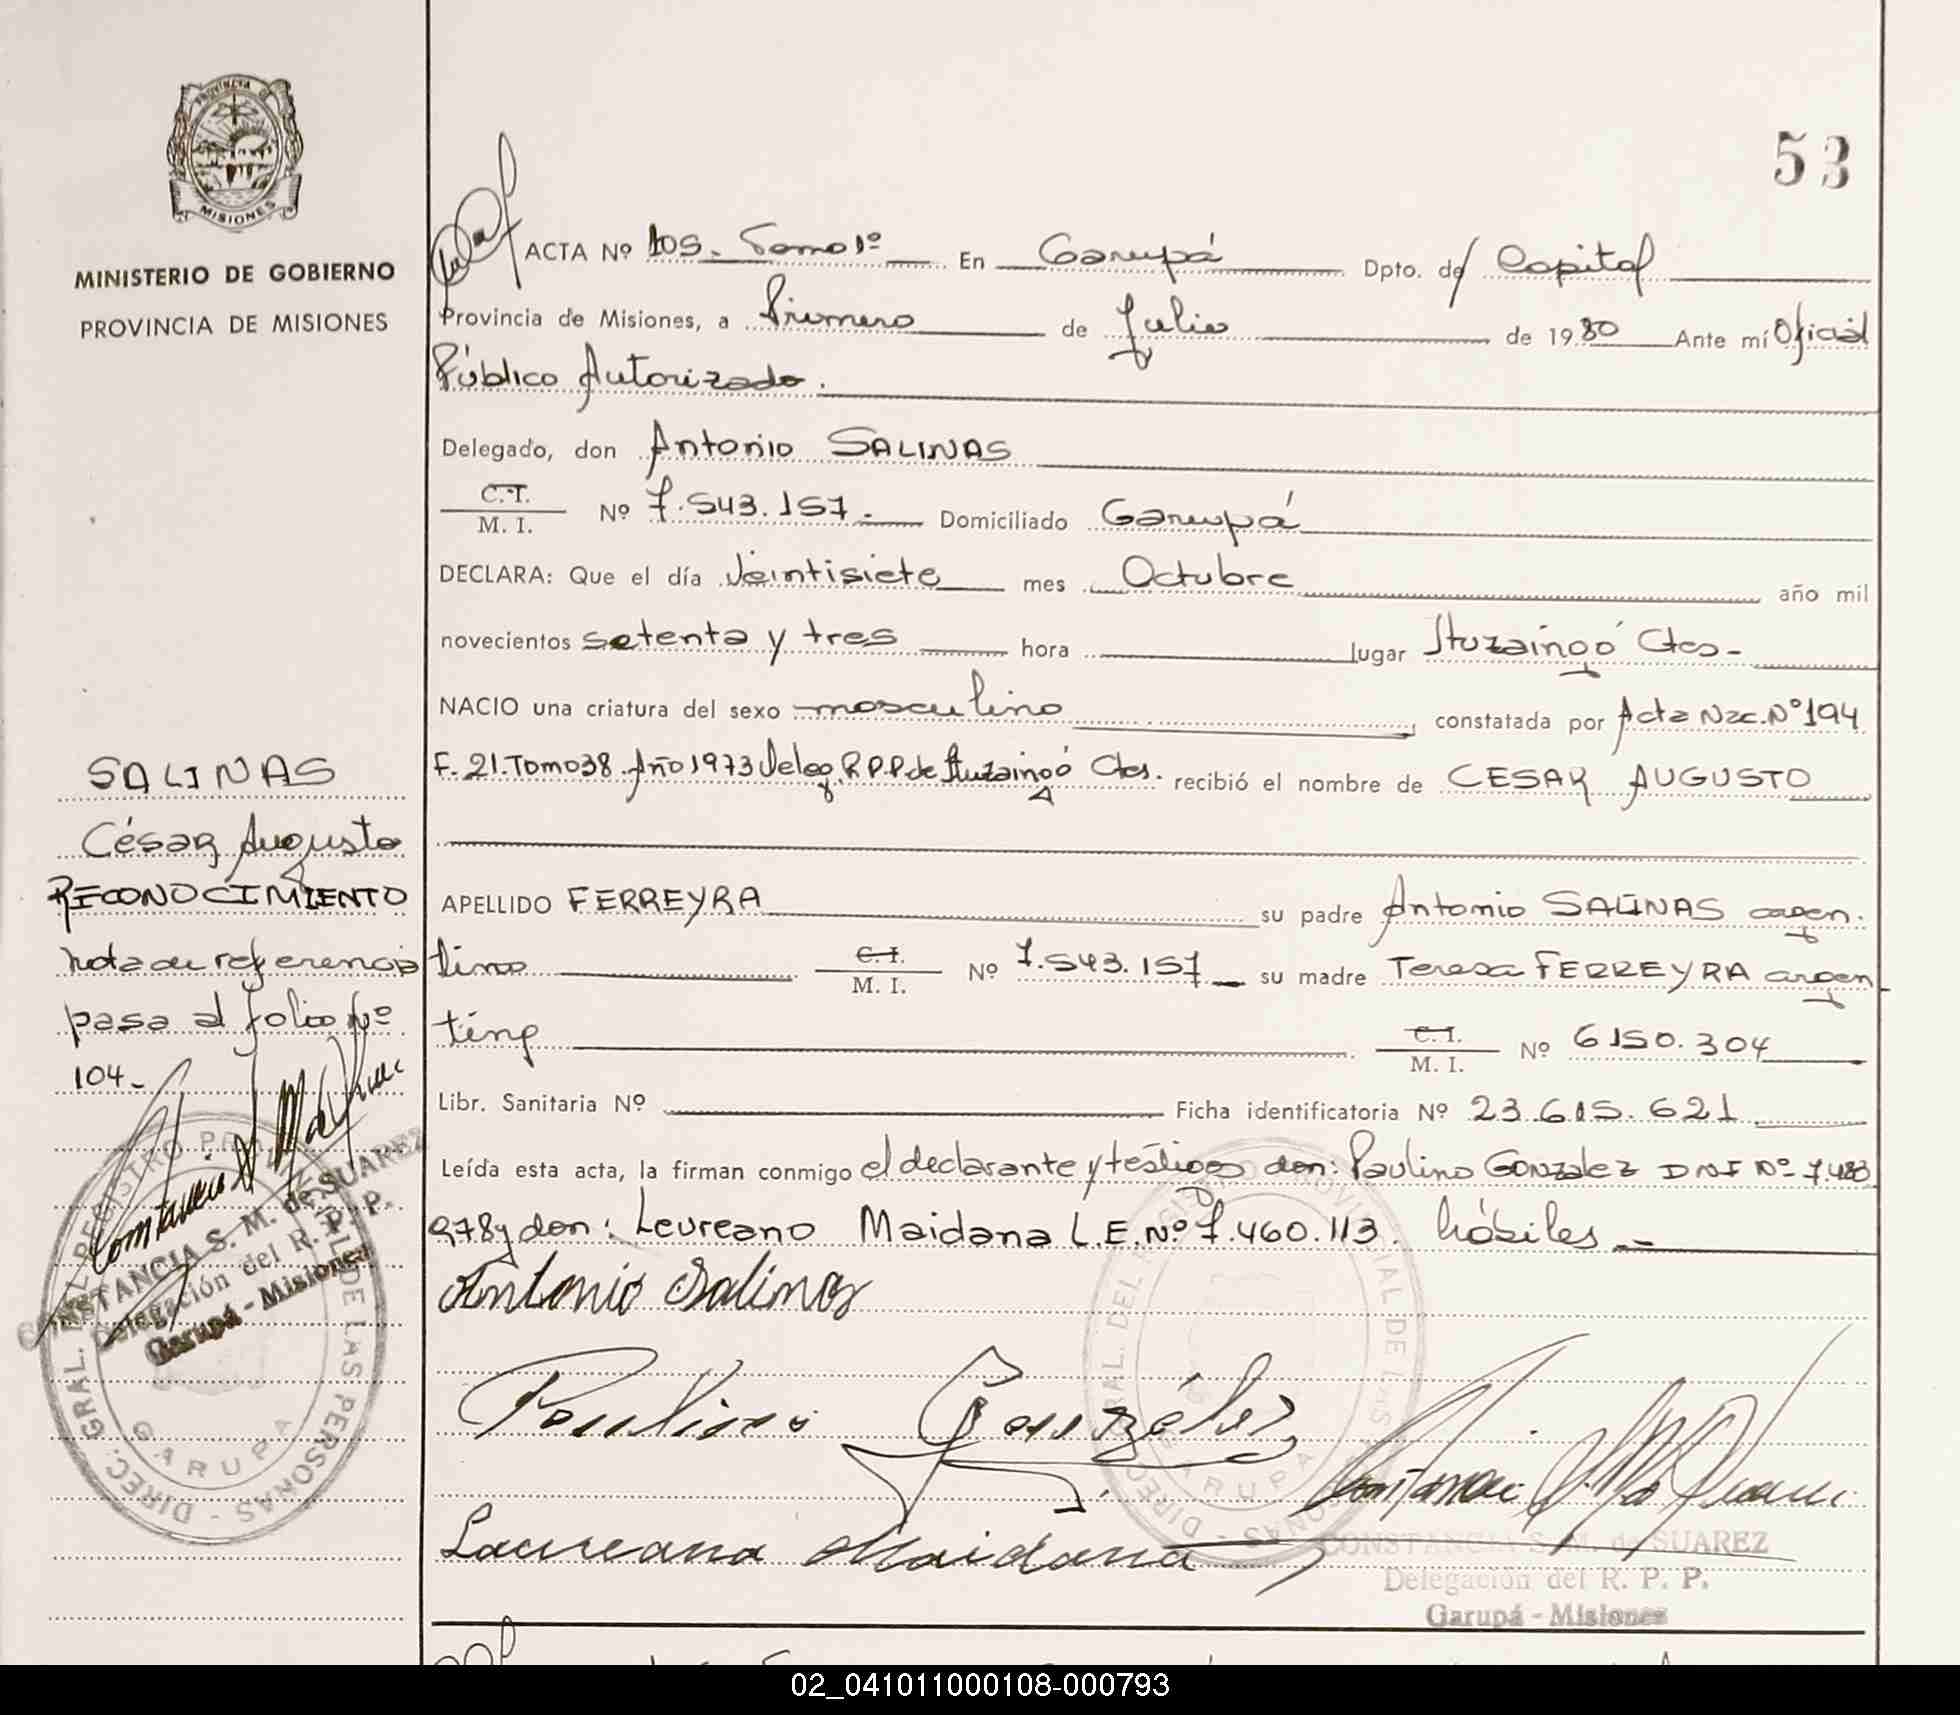 53
PROVINCIA DE
MISIONES
MINISTERIO DE GOBIERNO
PROVINCIA DE MISIONES
ACTA Nº 105. Tomo 1º En Garupá Dpto. de Capital
Provincia de Misiones, a Primero de Julio de 1980 Ante mí Oficial
Público Autorizado.
Delegado, don Antonio SALINAS
C.I.
M. I. Nº 7.543.157. Domiciliado Garupá
DECLARA: Que el día Veintisiete mes Octubre año mil
novecientos setenta y tres hora lugar Ituzaingó Ctes-
NACIO una criatura del sexo masculino, constatada por Acta Nac. Nº 194
F. 21. Tomo 38. Año 1973 Deleg. R.P.P. de Ituzaingó Ctes. recibió el nombre de CESAR AUGUSTO
APELLIDO FERREYRA su padre Antonio SALINAS argen.
tino C.I.
M. I. Nº 7.543.157 su madre Teresa FERREYRA argen
tina C.I.
M. I. Nº 6150.304
Libr. Sanitaria Nº Ficha identificatoria Nº 23.615.621
Leída esta acta, la firman conmigo el declarante y testigos don: Paulino GONZALEZ DNI Nº 7.483
978 y don: Leureano Maidana L.E. Nº 7.460.113. hábiles
Antonio Salinas
Paulino González
Laureana Maidana
CONSTANCIA S. M. de SUAREZ
Delegación del R. P. P.
Garupá - Misiones
DIREC. GRAL. DEL REGISTRO PROVINCIAL DE LAS PERSONAS -
GARUPA
SALINAS
César Augusto
RECONOCIMIENTO
nota de referencia
pasa al folio Nº
104-
CONSTANCIA S. M. de SUAREZ
Delegación del R. P. P.
Garupá - Misiones
DIREC. GRAL. DEL REGISTRO PROVINCIAL DE LAS PERSONAS -
GARUPA
02_041011000108-000793